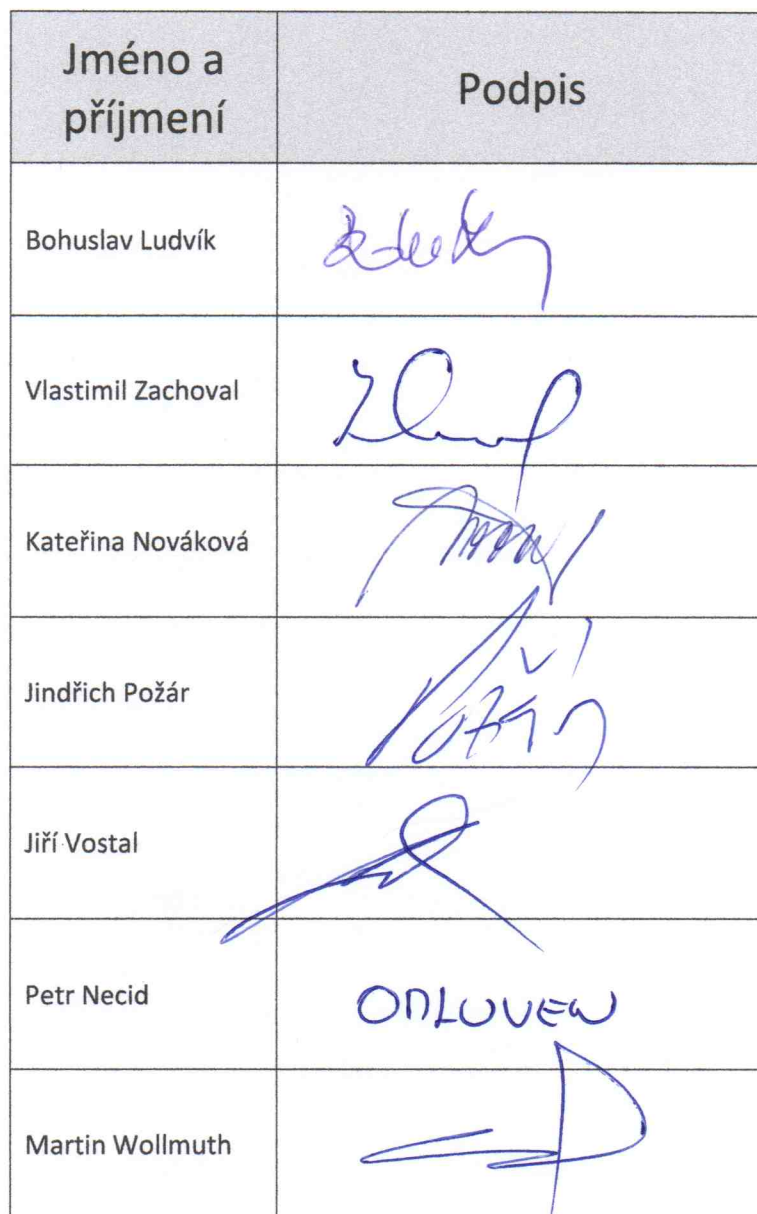 Jméno a
příjmení
Podpis
Bohuslav Ludvík
Vlastimil Zachoval
Kateřina Nováková
Jindřich Požár
Požár
Jiří Vostal
Petr Necid
OMLUVEN
Martin Wollmuth